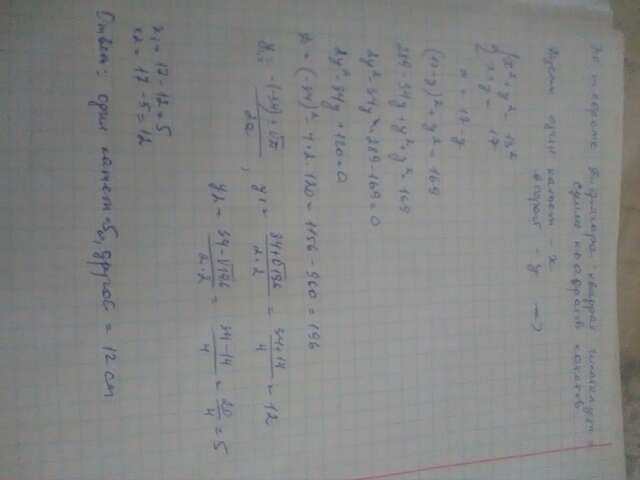 По теореме Пифагора: квадрат гипотенузы =
сумме квадратов катетов
Пусть один катет - x
второй - y =>
{ x² + y² = 13²
x + y = 17
x = 17 - y
(17-y)² + y² = 169
289 - 34y + y² + y² = 169
2y² - 34y + 289 - 169 = 0
2y² - 34y + 120 = 0
D = (-34)² - 4·2·120 = 1156 - 960 = 196
y₁ = -(-34) ± √D / 2a , y₁ = 34+√196 / 2·2 = 34+14 / 4 = 12
y₂ = 34-√196 / 2·2 = 34-14 / 4 = 20 / 4 = 5
x₁ = 17 - 12 = 5
x₂ = 17 - 5 = 12
Ответ: один катет = 5 см, другой = 12 см